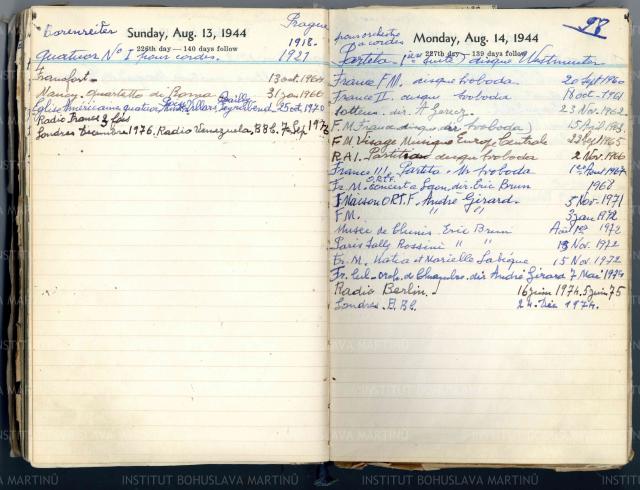 Barenreiter
Sunday, Aug. 13, 1944
226th day — 140 days follow
Prague
1918-
1921
Quatuor No I pour cordes.
Francfort-
13 oct. 1964
Nancy. Quartetto di Roma
31 jan 1966
Eglise Américaine quatuor
25 oct. 1970
Radio France 3 fois
Londres Decembre 1976. Radio Venezuela, BBC. 7 Sep 1978
pour orchestre
a cordes
Monday, Aug. 14, 1944
227th day — 139 days follow
98
Partita (1ère Suite) disque Westminster
France F.M. disque Svoboda
20 Sept 1960
France II. disque Svoboda
18 oct. 1961
dir. A. Gerez
23 Nov. 1962
F.M. France disque dir Svoboda
15 April 1963
F.M. Visage Musique Europe Centrale
1965
R.A.I. Partita disque Svoboda
2 Nov. 1966
France III. Partita. Svoboda
1er Aout 1967
Fr. M. O.R.T.F. Concert a dir. Eric Brun
1968
Maison O.R.T.F. André Girard.
5 Nov. 1971
F.M. " "
3 jan 1972
Musée de Cluny Eric Brun
1972
Paris Rossini " "
13 Nov. 1972
Fr. M. Katia et Marielle Labèque
15 Nov. 1972
Fr. Cul. orch. de Chambre. dir André Girard 7 Mai 1974
Radio Berlin.
16 juin 1974. 5 juin 75
Londres. B.B.C.
24. Dec 1974.
INSTITUT BOHUSLAVA MARTINŮ
INSTITUT BOHUSLAVA MARTINŮ